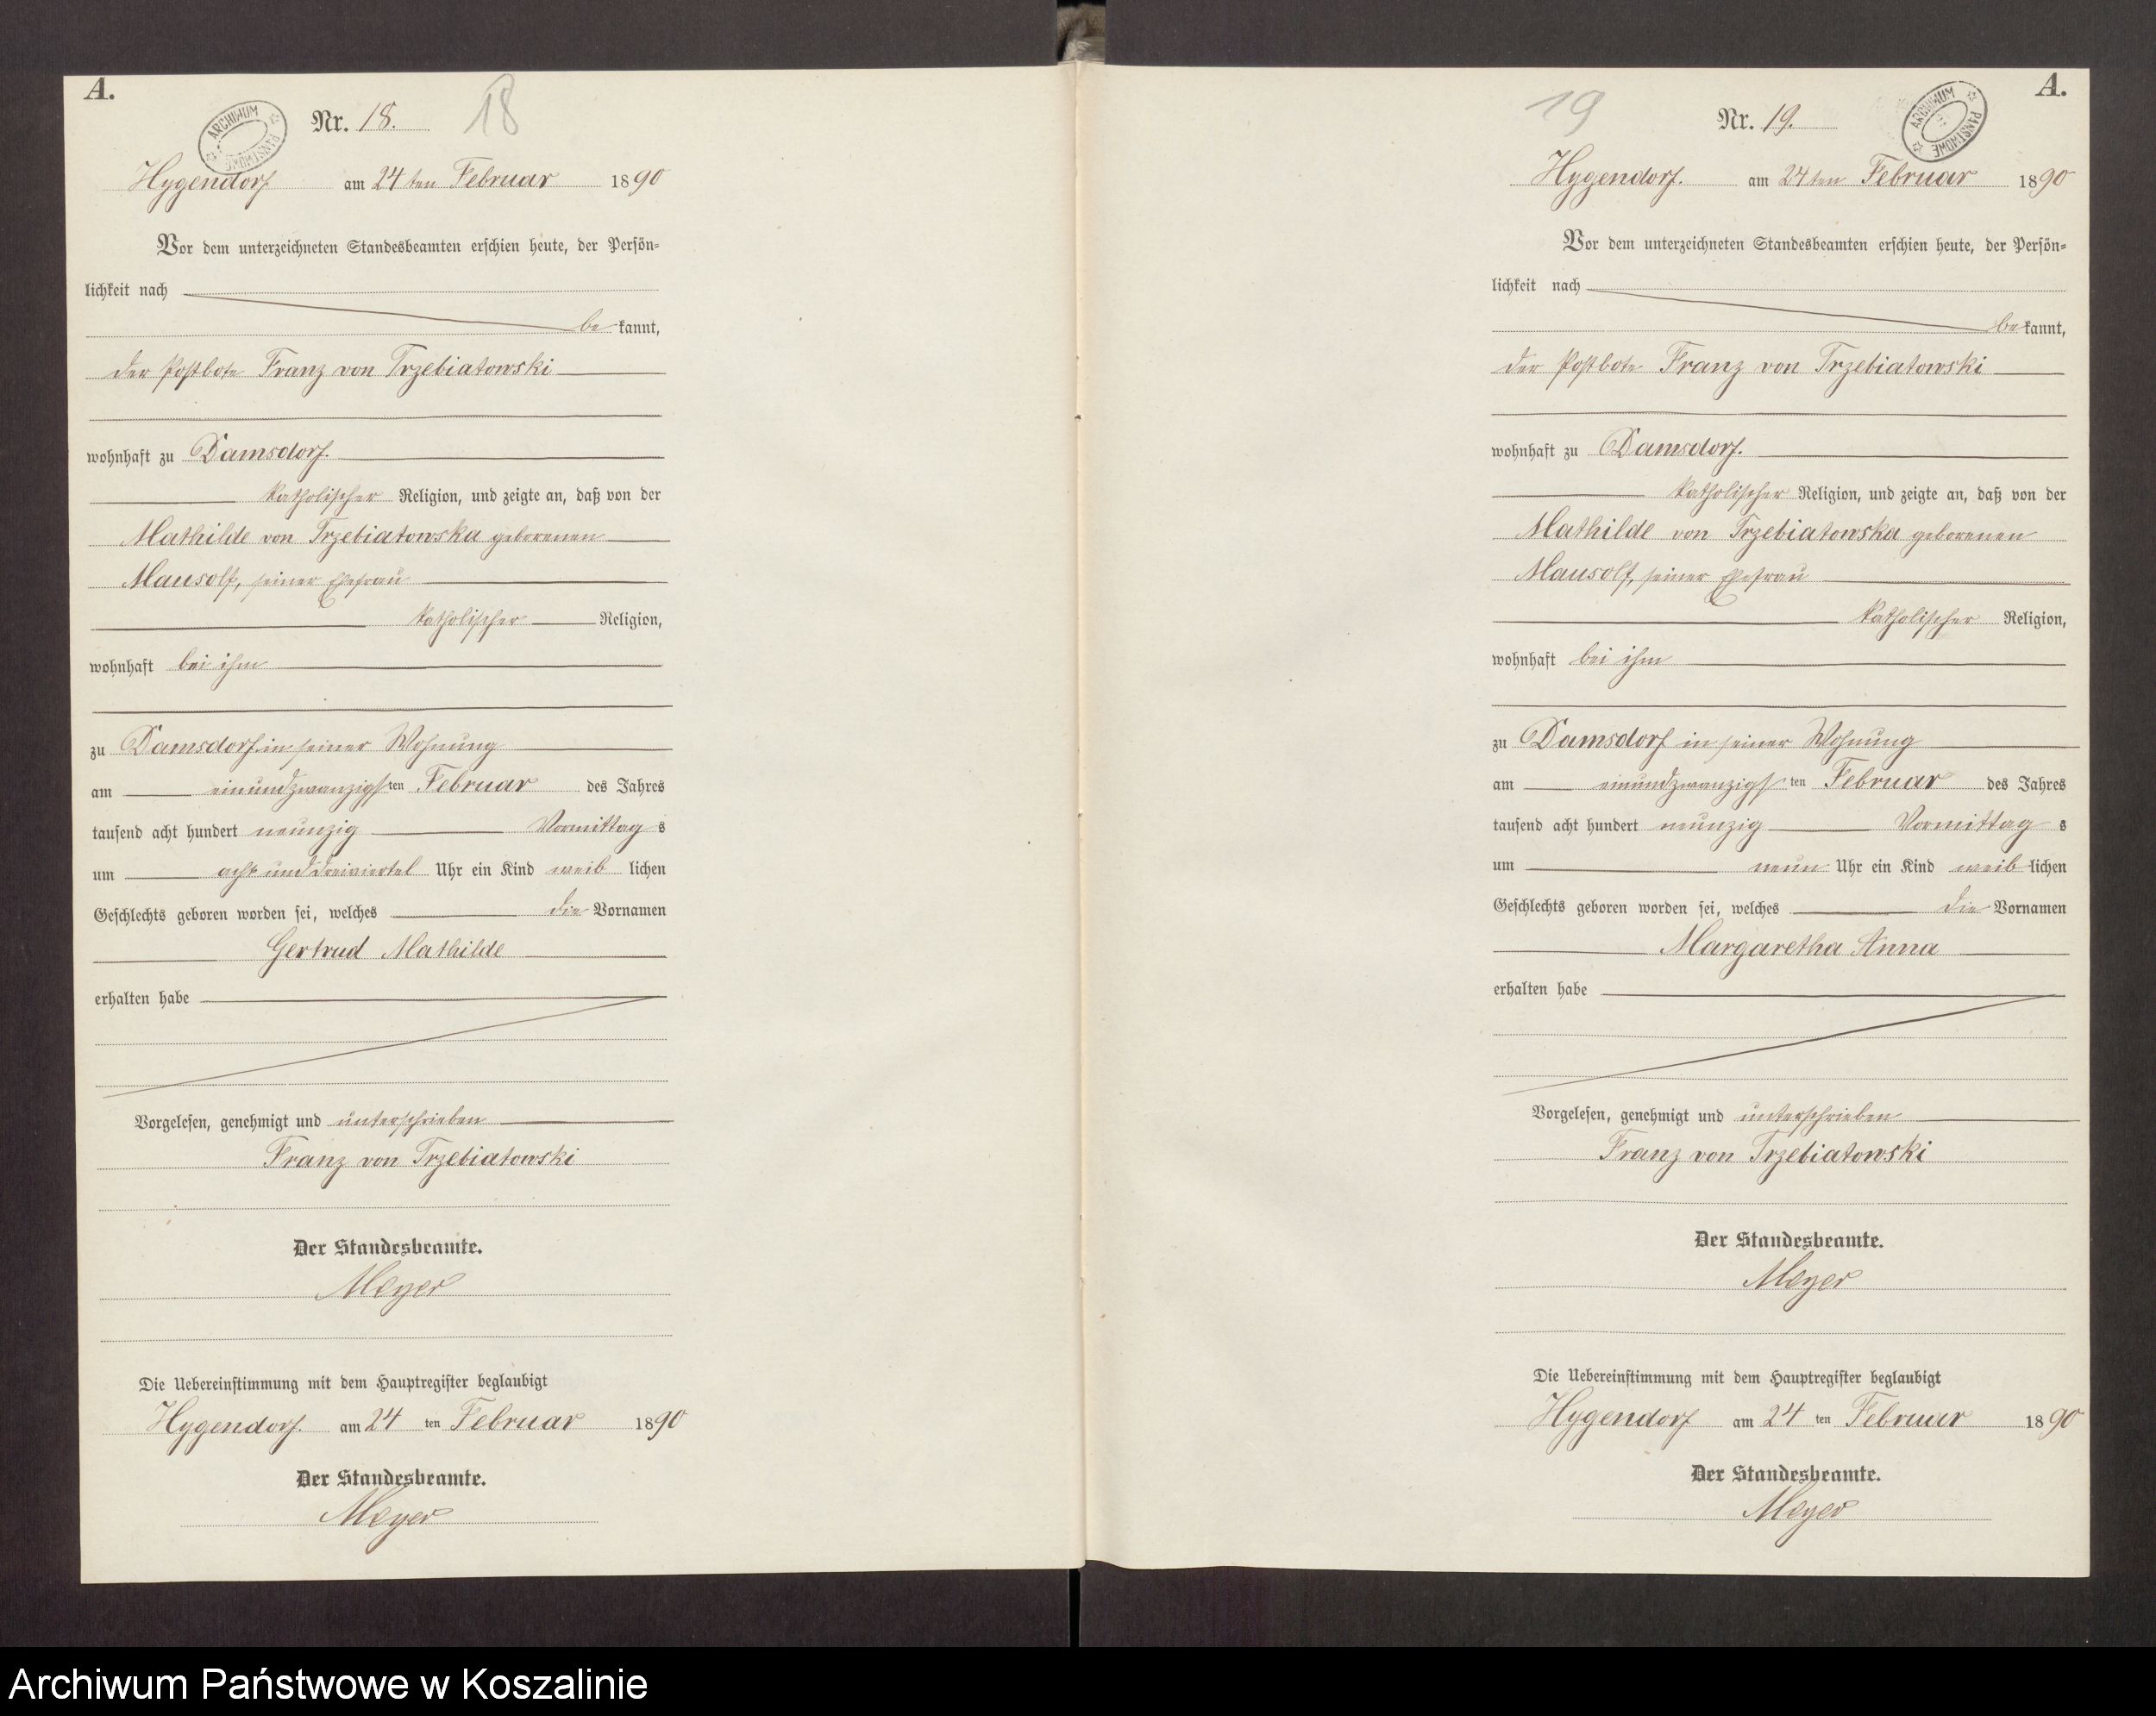 A.
ARCHIWUM PAŃSTWOWE
Nr. 18. 18
Hygendorf am 24 ten Februar 1890
Vor dem unterzeichneten Standesbeamten erschien heute, der Persön-
lichkeit nach
be kannt,
der Postbote Franz von Trzebiatowski
wohnhaft zu Damsdorf.
katholischer Religion, und zeigte an, daß von der
Mathilde von Trzebiatowska geborenen
Mausolf, seiner Ehefrau
katholischer Religion,
wohnhaft bei ihm
zu Damsdorf in seiner Wohnung
am einundzwanzigsten Februar des Jahres
tausend acht hundert neunzig Vormittag s
um acht und dreiviertel Uhr ein Kind weib lichen
Geschlechts geboren worden sei, welches die Vornamen
Gertrud Mathilde
erhalten habe
Vorgelesen, genehmigt und unterschrieben
Franz von Trzebiatowski
Der Standesbeamte.
Meyer
Die Uebereinstimmung mit dem Hauptregister beglaubigt
Hygendorf. am 24 ten Februar 1890
Der Standesbeamte.
Meyer
A.
19 Nr. 19.
ARCHIWUM PAŃSTWOWE
Hygendorf. am 24 ten Februar 1890
Vor dem unterzeichneten Standesbeamten erschien heute, der Persön-
lichkeit nach
be kannt,
der Postbote Franz von Trzebiatowski
wohnhaft zu Damsdorf.
katholischer Religion, und zeigte an, daß von der
Mathilde von Trzebiatowska geborenen
Mausolf, seiner Ehefrau
katholischer Religion,
wohnhaft bei ihm
zu Damsdorf in seiner Wohnung
am einundzwanzigsten Februar des Jahres
tausend acht hundert neunzig Vormittag s
um neun Uhr ein Kind weib lichen
Geschlechts geboren worden sei, welches die Vornamen
Margaretha Anna
erhalten habe
Vorgelesen, genehmigt und unterschrieben
Franz von Trzebiatowski
Der Standesbeamte.
Meyer
Die Uebereinstimmung mit dem Hauptregister beglaubigt
Hygendorf am 24 ten Februar 1890
Der Standesbeamte.
Meyer
Archiwum Państwowe w Koszalinie